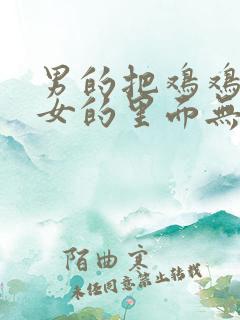 男的把鸡鸡
女的里面无
陌曲寒
未经同意禁止转载